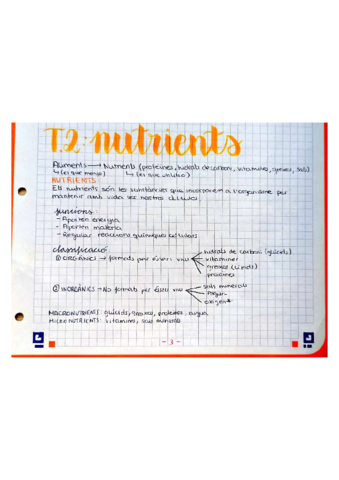 T.2. nutrients
Aliments → Nutrients (proteïnes, hidrats de carboni, vitamines, greixos, sals)
↳ (el que menjo) ↳ (el que utilitzo)
NUTRIENTS:
Els nutrients són les substàncies que incorporem a l'organisme per
mantenir amb vida les nostres cèl·lules.
funcions
- Aporten energia
- Aporten matèria
- Regulen reaccions químiques cel·lulars
classificació
① ORGÀNICS → formats per éssers vius
hidrats de carboni (glúcids)
vitamines
greixos (lípids)
proteïnes
② INORGÀNICS → No formats per éssers vius
sals minerals
aigua
oxigen*
MACRONUTRIENTS: glúcids, greixos, proteïnes, aigua
MICRONUTRIENTS: vitamines, sals minerals
- 3 -